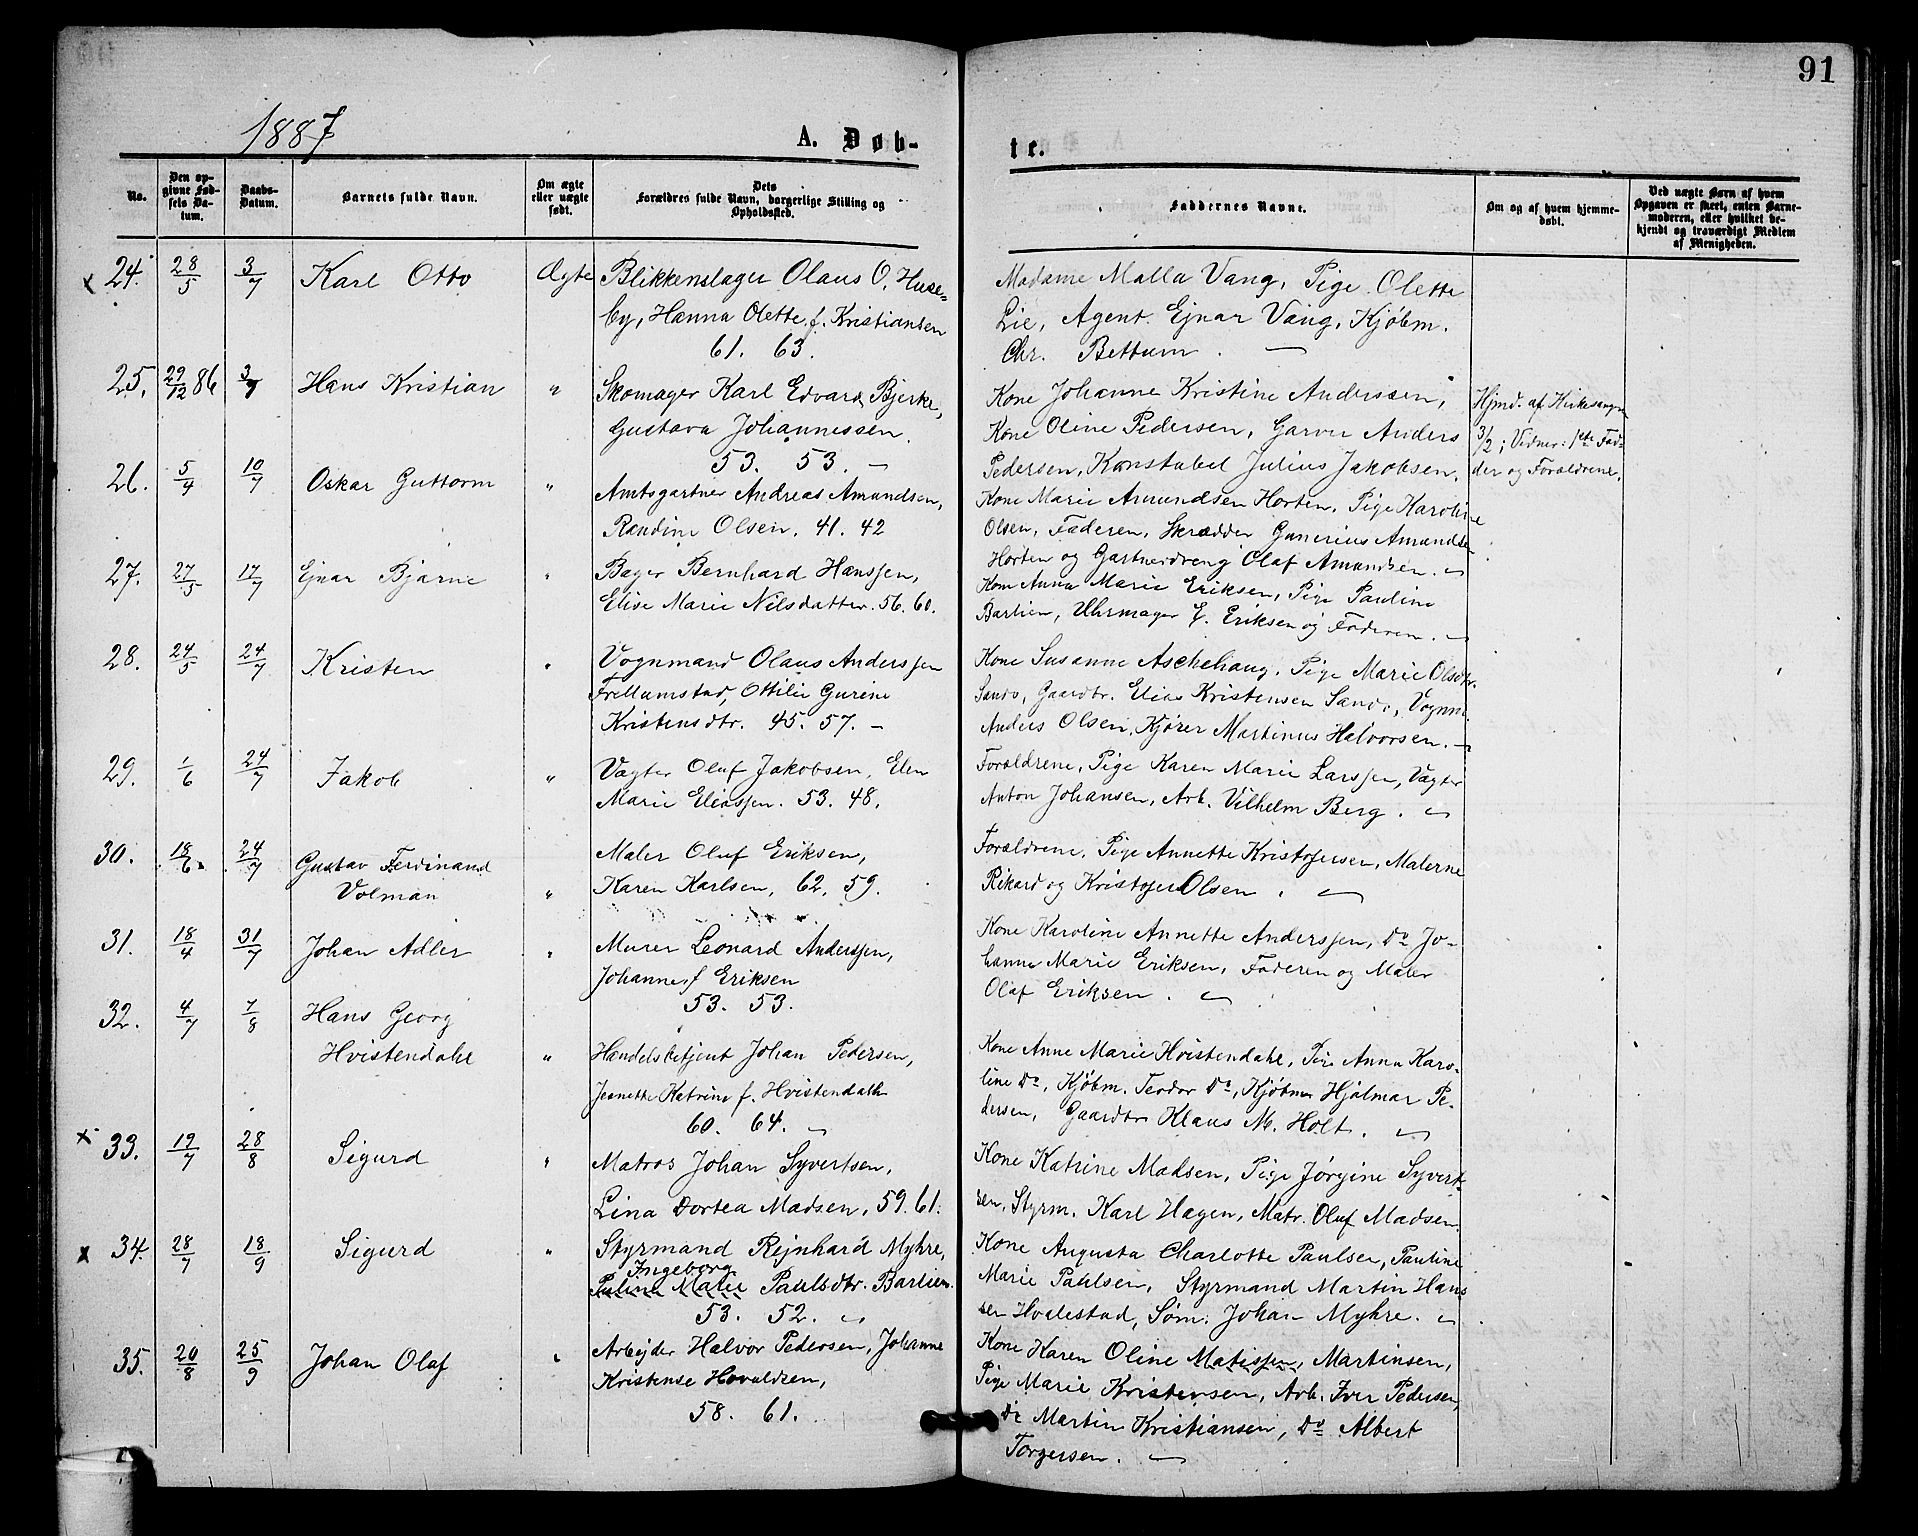 91
1887
A. Døb-
te.
No.
Den op-
givne Fød-
sels Da-
tum.
Daabs-
Datum.
Barnets fulde Navn.
Om ægte
eller uægte
født.
Dets
Forældres fulde Navn, borgerlige Stilling og
Opholdssted.
Faddernes Navne.
Om og af hvem hjemme-
døbt.
Ved uægte Børn af hvem
Opgaven er skeet, enten Barne-
moderen, eller hvilket be-
kjendt og troværdigt Medlem
af Menigheden.
x 24. 28/5 3/7 Karl Otto Ægte
Blikkenslager Olaus O. Huse-
by, Hanna Olette f. Kristiansen
61. 63.
Madame Malla Vang, Pige Olette
Lie, Agent Ejnar Vang, Kjøbm.
Chr. Bettum. —
25. 29/12 86 3/7 Hans Kristian "
Skomager Karl Edvard Bjerke,
Gustava Johannessen.
53. 53. —
Kone Johanne Kristine Anderssen,
Kone Oline Pedersen, Garver Anders
Pedersen, Konstabel Julius Jakobsen.
Hjmd. af Kirkesanger
3/2; Vidner: 1ste Fad-
der og Forældrene.
26. 5/4 10/7 Oskar Guttorm "
Amtsgartner Andreas Amundsen,
Randine Olsen. 41. 42
Kone Marie Amundsen Horten, Pige Karoline
Olsen, Faderen, Skrædder Gunerius Amundsen
Horten og Gartnerdreng Olaf Amundsen.
27. 27/5 17/7 Ejnar Bjarne "
Bager Bernhard Hanssen,
Elise Marie Nilsdatter. 56. 60.
Kone Anna Marie Eriksen, Pige Pauline
Barlien, Uhrmager E. Eriksen og Faderen.
28. 24/5 24/7 Kristen "
Vognmand Olaus Anderssen
Trellumstad, Ottilie Gurine
Kristensdtr. 45. 57. —
Kone Susanne Aschehaug, Pige Marie Olsdtr.
Sando, Gaardbr. Elias Kristensen Sando, Vognm.
Anders Olsen, Kjører Martinus Halvorsen.
29. 1/6 24/7 Jakob "
Vægter Oluf Jakobsen, Elen
Marie Eliassen. 53. 48.
Forældrene, Pige Karen Marie Larssen, Vægter
Anton Johansen, Arb. Vilhelm Berg.
30. 18/6 24/7 Gustav Ferdinand
Volman "
Maler Oluf Eriksen,
Karen Karlsen, 62. 59.
Forældrene, Pige Annette Kristofersen, Malerne
Rikard og Kristofer Olsen.
31. 18/4 31/7 Johan Adler "
Murer Leonard Anderssen,
Johanne f. Eriksen
53. 53.
Kone Karoline Annette Anderssen, Do Jo-
hanne Marie Eriksen, Faderen og Maler
Olaf Eriksen.
32. 4/7 7/8 Hans Georg
Hvistendahl "
Handelsbetjent Johan Pedersen,
Jeanette Katrine f. Hvistendahl
60. 64.
Kone Anne Marie Hvistendahl, Pige Anna Karo-
line Do, Kjøbm. Teodor Do, Kjøbm Hjalmar Pe-
dersen, Gaardbr Klaus M. Holt.
x 33. 19/7 28/8 Sigurd "
Matros Johan Syvertsen,
Lina Dortea Madsen, 59. 61.
Kone Katrine Madsen, Pige Jørgine Syvert-
sen, Styrm. Karl Hagen, Matr. Oluf Madsen.
x 34. 28/7 18/9 Sigurd "
Styrmand Rejnhard Myhre,
Ingeborg
Pauline Matie Paulsdtr. Barlien.
53. 52.
Kone Augusta Charlotte Paulsen, Pauline
Marie Paulsen, Styrmand Martin Hans
sen Hvalestad, Søm. Johan Myhre.
35. 20/8 25/9 Johan Olaf "
Arbejder Halvor Pedersen, Johanne
Kristense Hovaldsen,
58. 61.
Kone Karen Oline Matissen, Martinsen,
Pige Marie Kristensen, Arb. Iver Pedersen,
Do Martin Kristiansen, Do Albert
Torgersen. —